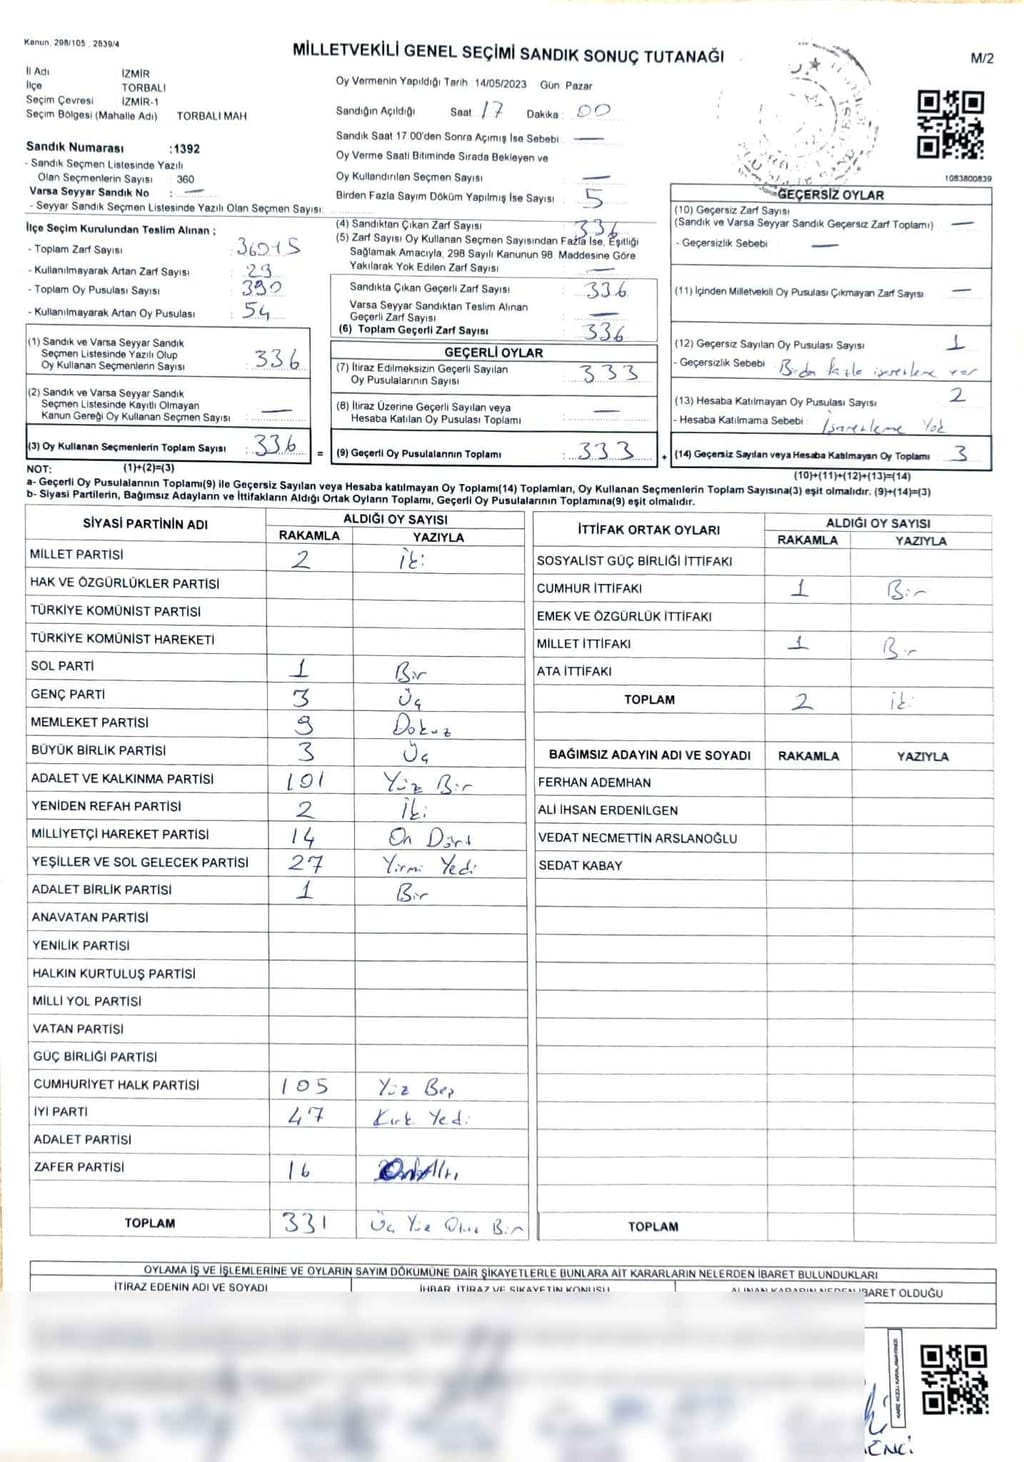 Kanun, 298/105, 2839/4
MİLLETVEKİLİ GENEL SEÇİMİ SANDIK SONUÇ TUTANAĞI
M/2
İl Adı İZMİR
İlçe TORBALI
Seçim Çevresi İZMİR-1
Seçim Bölgesi (Mahalle Adı) TORBALI MAH
Oy Vermenin Yapıldığı Tarih :14/05/2023 Gün Pazar
Sandığın Açıldığı Saat 17 Dakika : 00
Sandık Saat 17 00'den Sonra Açımış İse Sebebi : —
Oy Verme Saati Bitiminde Sırada Bekleyen ve
Oy Kullandırılan Seçmen Sayısı : —
Birden Fazla Sayım Döküm Yapılmış İse Sayısı : 5
1083800839
Sandık Numarası :1392
- Sandık Seçmen Listesinde Yazılı
Olan Seçmenlerin Sayısı : 360
Varsa Seyyar Sandık No : —
- Seyyar Sandık Seçmen Listesinde Yazılı Olan Seçmen Sayısı:
İlçe Seçim Kurulundan Teslim Alınan ;
- Toplam Zarf Sayısı :
- Kullanılmayarak Artan Zarf Sayısı : 29
- Toplam Oy Pusulası Sayısı : 390
- Kullanılmayarak Artan Oy Pusulası : 54
(1) Sandık ve Varsa Seyyar Sandık
Seçmen Listesinde Yazılı Olup
Oy Kullanan Seçmenlerin Sayısı : 336
(2) Sandık ve Varsa Seyyar Sandık
Seçmen Listesinde Kayıtlı Olmayan
Kanun Gereği Oy Kullanan Seçmen Sayısı : —
(3) Oy Kullanan Seçmenlerin Toplam Sayısı : 336
(4) Sandıktan Çıkan Zarf Sayısı : 336
(5) Zarf Sayısı Oy Kullanan Seçmen Sayısından Fazla İse, Eşitliği
Sağlamak Amacıyla, 298 Sayılı Kanunun 98. Maddesine Göre
Yakılarak Yok Edilen Zarf Sayısı : —
Sandıkta Çıkan Geçerli Zarf Sayısı : 336
Varsa Seyyar Sandıktan Teslim Alınan
Geçerli Zarf Sayısı : —
(6) Toplam Geçerli Zarf Sayısı : 336
GEÇERLİ OYLAR
(7) İtiraz Edilmeksizin Geçerli Sayılan
Oy Pusulalarının Sayısı : 333
(8) İtiraz Üzerine Geçerli Sayılan veya
Hesaba Katılan Oy Pusulası Toplamı : —
= (9) Geçerli Oy Pusulalarının Toplamı : 333
GEÇERSİZ OYLAR
(10) Geçersiz Zarf Sayısı
(Sandık ve Varsa Seyyar Sandık Geçersiz Zarf Toplamı) : —
- Geçersizlik Sebebi : —
(11) İçinden Milletvekili Oy Pusulası Çıkmayan Zarf Sayısı : —
(12) Geçersiz Sayılan Oy Pusulası Sayısı : 1
- Geçersizlik Sebebi : Birden fazla işaretleme var
(13) Hesaba Katılmayan Oy Pusulası Sayısı : 2
- Hesaba Katılmama Sebebi : İşaretleme Yok
+ (14) Geçersiz Sayılan veya Hesaba Katılmayan Oy Toplamı : 3
NOT: (1)+(2)=(3)
(10)+(11)+(12)+(13)=(14)
a- Geçerli Oy Pusulalarının Toplamı(9) ile Geçersiz Sayılan veya Hesaba katılmayan Oy Toplamı(14) Toplamları, Oy Kullanan Seçmenlerin Toplam Sayısına(3) eşit olmalıdır. (9)+(14)=(3)
b- Siyasi Partilerin, Bağımsız Adayların ve İttifakların Aldığı Ortak Oyların Toplamı, Geçerli Oy Pusulalarının Toplamına(9) eşit olmalıdır.
SİYASİ PARTİNİN ADI ALDIĞI OY SAYISI
RAKAMLA YAZIYLA
MİLLET PARTİSİ 2 İki
HAK VE ÖZGÜRLÜKLER PARTİSİ
TÜRKİYE KOMÜNİST PARTİSİ
TÜRKİYE KOMÜNİST HAREKETİ
SOL PARTİ 1 Bir
GENÇ PARTİ 3 Üç
MEMLEKET PARTİSİ 9 Dokuz
BÜYÜK BİRLİK PARTİSİ 3 Üç
ADALET VE KALKINMA PARTİSİ 101 Yüz Bir
YENİDEN REFAH PARTİSİ 2 İki
MİLLİYETÇİ HAREKET PARTİSİ 14 On Dört
YEŞİLLER VE SOL GELECEK PARTİSİ 27 Yirmi Yedi
ADALET BİRLİK PARTİSİ 1 Bir
ANAVATAN PARTİSİ
YENİLİK PARTİSİ
HALKIN KURTULUŞ PARTİSİ
MİLLİ YOL PARTİSİ
VATAN PARTİSİ
GÜÇ BİRLİĞİ PARTİSİ
CUMHURİYET HALK PARTİSİ 105 Yüz Beş
İYİ PARTİ 47 Kırk Yedi
ADALET PARTİSİ
ZAFER PARTİSİ 16 On Altı
TOPLAM 331 Üç Yüz Otuz Bir
İTTİFAK ORTAK OYLARI ALDIĞI OY SAYISI
RAKAMLA YAZIYLA
SOSYALİST GÜÇ BİRLİĞİ İTTİFAKI
CUMHUR İTTİFAKI 1 Bir
EMEK VE ÖZGÜRLÜK İTTİFAKI
MİLLET İTTİFAKI 1 Bir
ATA İTTİFAKI
TOPLAM 2 iki
BAĞIMSIZ ADAYIN ADI VE SOYADI RAKAMLA YAZIYLA
FERHAN ADEMHAN
ALİ İHSAN ERDENİLGEN
VEDAT NECMETTİN ARSLANOĞLU
SEDAT KABAY
TOPLAM
OYLAMA İŞ VE İŞLEMLERİNE VE OYLARIN SAYIM DÖKÜMÜNE DAİR ŞİKAYETLERLE BUNLARA AİT KARARLARIN NELERDEN İBARET BULUNDUKLARI
İTİRAZ EDENİN ADI VE SOYADI İHBAR, İTİRAZ VE ŞİKAYETİN KONUSU ALINAN KARARIN NEDEN İBARET OLDUĞU